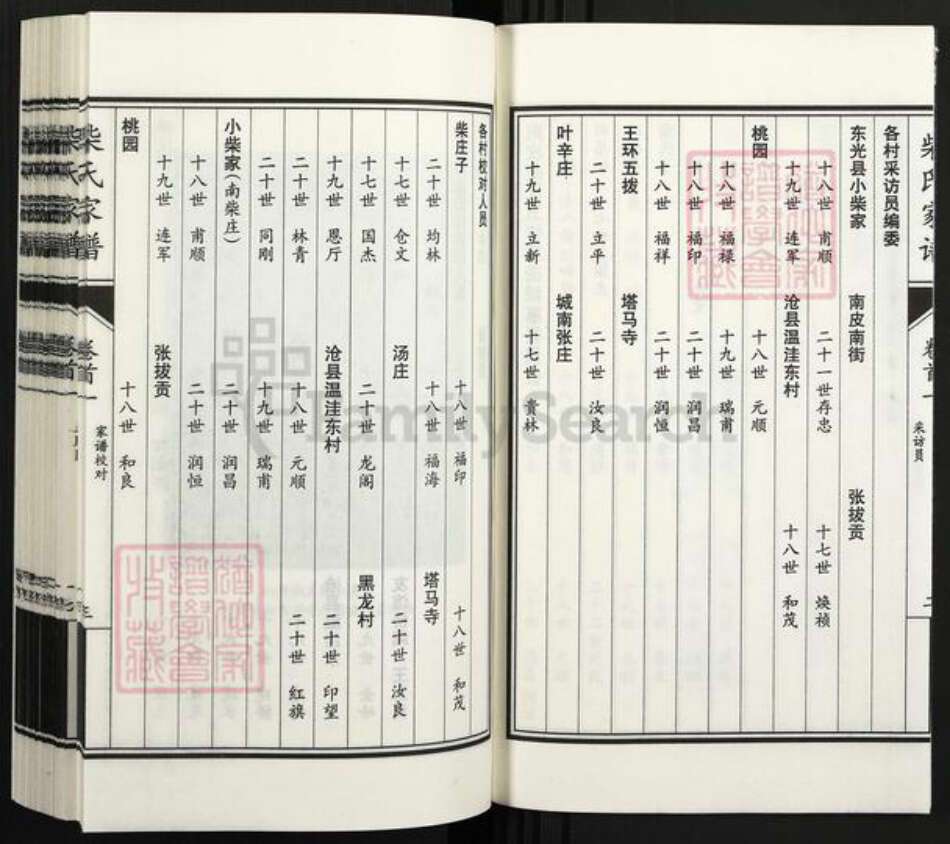 柴氏家谱
卷首
采访员
二
各村采访员编委
东光县小柴家 南皮南街 张拔贡
十八世 甫顺 二十一世存忠 十七世 焕祯
十九世 连军 沧县温洼东村 十八世 和茂
桃园 十八世 元顺
十八世 福禄 十九世 瑞甫
十八世 福印 二十世 润昌
十八世 福祥 二十世 润恒
王环五拨 塔马寺
二十世 立平 二十世 汝良
叶辛庄 城南张庄
十九世 立新 十七世 贵林
各村校对人员
柴庄子 十八世 福印 十八世 和茂
二十世 均林 十八世 福海 塔马寺
十七世 仓文 汤庄 二十世 汝良
十七世 国杰 二十世 龙阁 黑龙村
十九世 恩厅 沧县温洼东村 二十世 印望
二十世 林青 十八世 元顺 二十世 红旗
二十世 同刚 十九世 瑞甫
小柴家（南柴庄） 二十世 润昌
十八世 甫顺 二十世 润恒
十九世 连军 张拔贡
桃园 十八世 和良
家谱校对
柴氏家谱
卷首
FamilySearch